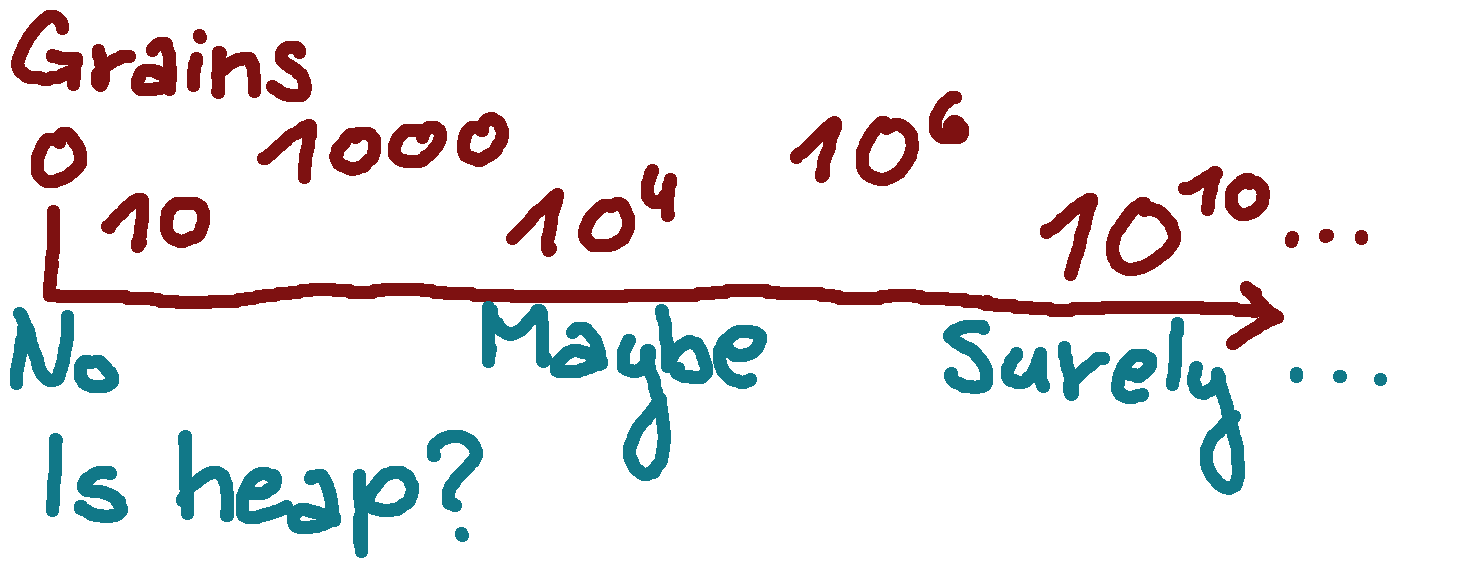 Grains
0 10 1000 10⁴ 10⁶ 10¹⁰ ...
No Maybe Surely ...
Is heap?